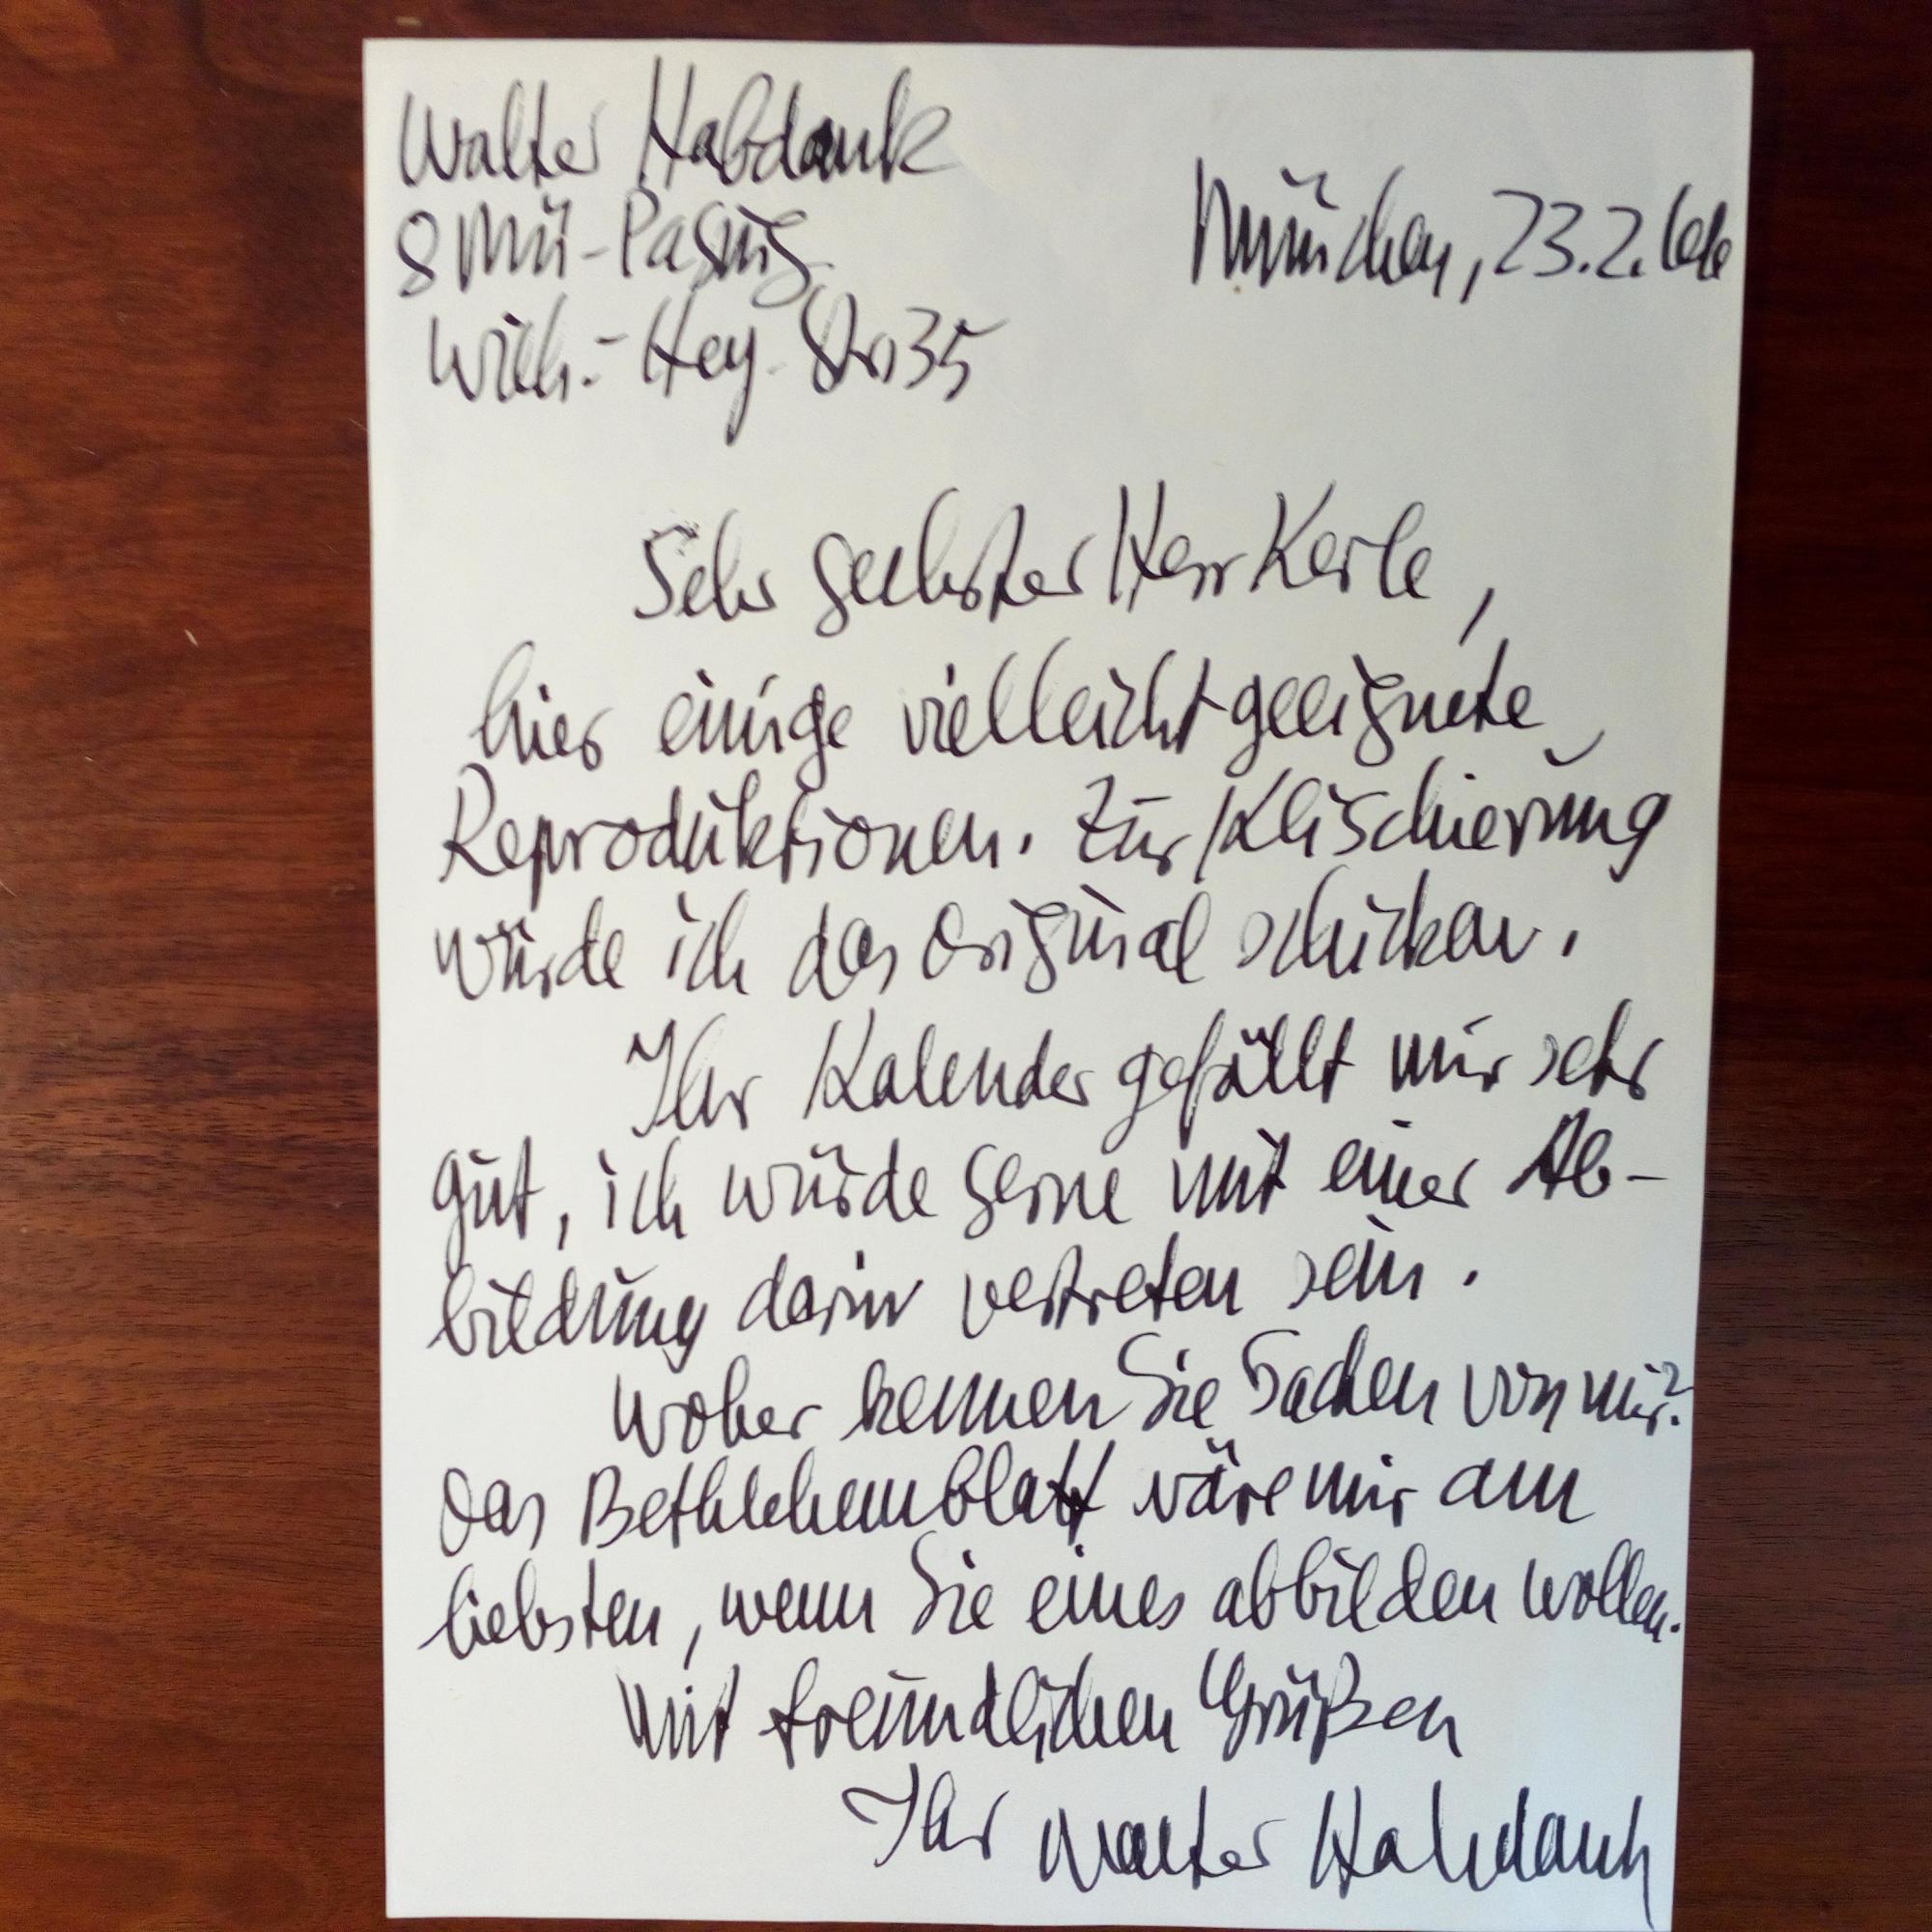 Walter Habdank
8 Mü-Pasing
Wilh.-Hey-Str. 35
München, 23.2.66
Sehr geehrter Herr Kerle,
hier einige vielleicht geeignete
Reproduktionen. Zur Klischierung
würde ich das Original schicken.
Ihr Kalender gefällt mir sehr
gut, ich würde gerne mit einer Ab-
bildung darin vertreten sein.
Woher kennen Sie Sachen von mir?
Das Bethlehemblatt wäre mir am
liebsten, wenn Sie eines abbilden wollen.
Mit freundlichen Grüßen
Ihr Walter Habdank